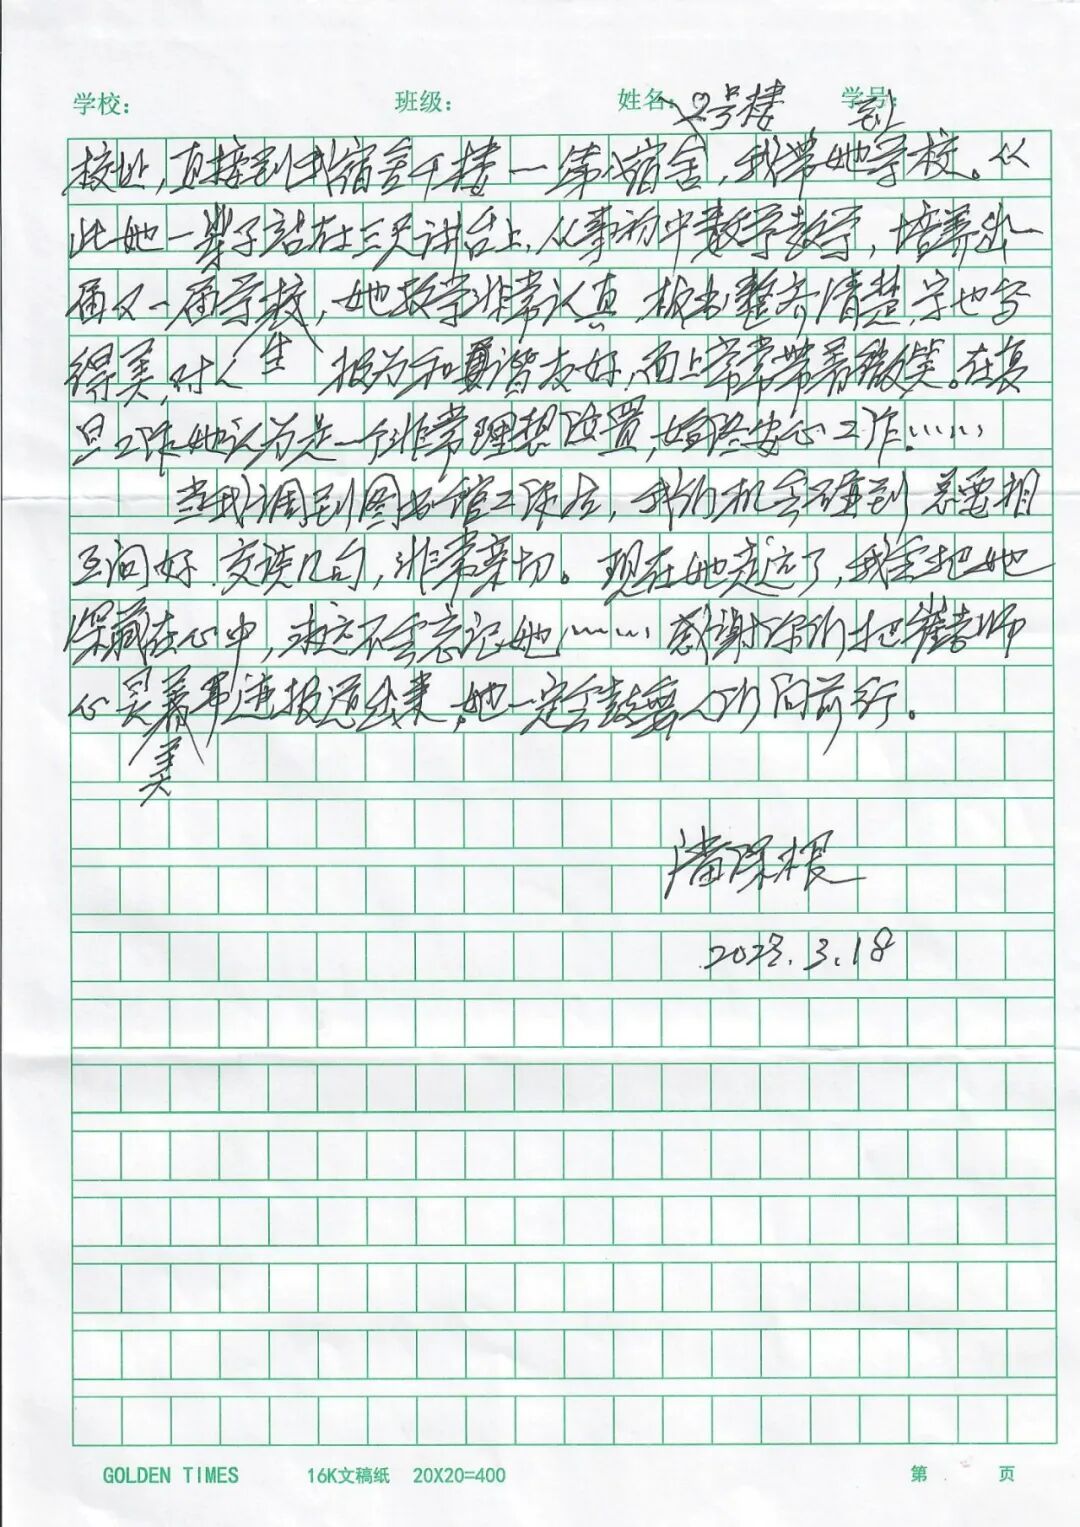 学校： 班级： 姓名： 学号：
2号楼 到
校址，直接到我宿舍下楼一第 宿舍，我带她学校。从
此她一辈子站在三尺讲台上，从事初中数学教学，培养出一
届又一届学校，她教学非常认真 板书整齐清楚，字也写
生
得美，对人 极为和 谐友好，面上常常带着微笑。在复
旦工作她认为是一个非常理想 位置，始终安心工作。……
当我调到图书馆工作后，我们机会碰到 总要相
互问好、交谈几句，非常亲切。现在她走远了，我会把她
深藏在心中，永远不会忘记她…… 感谢你们把 老师
心 事迹报道出来，她一定会鼓舞人们向前行。
美
潘保根
2023.3.18
GOLDEN TIMES 16K文稿纸 20X20=400 第 页